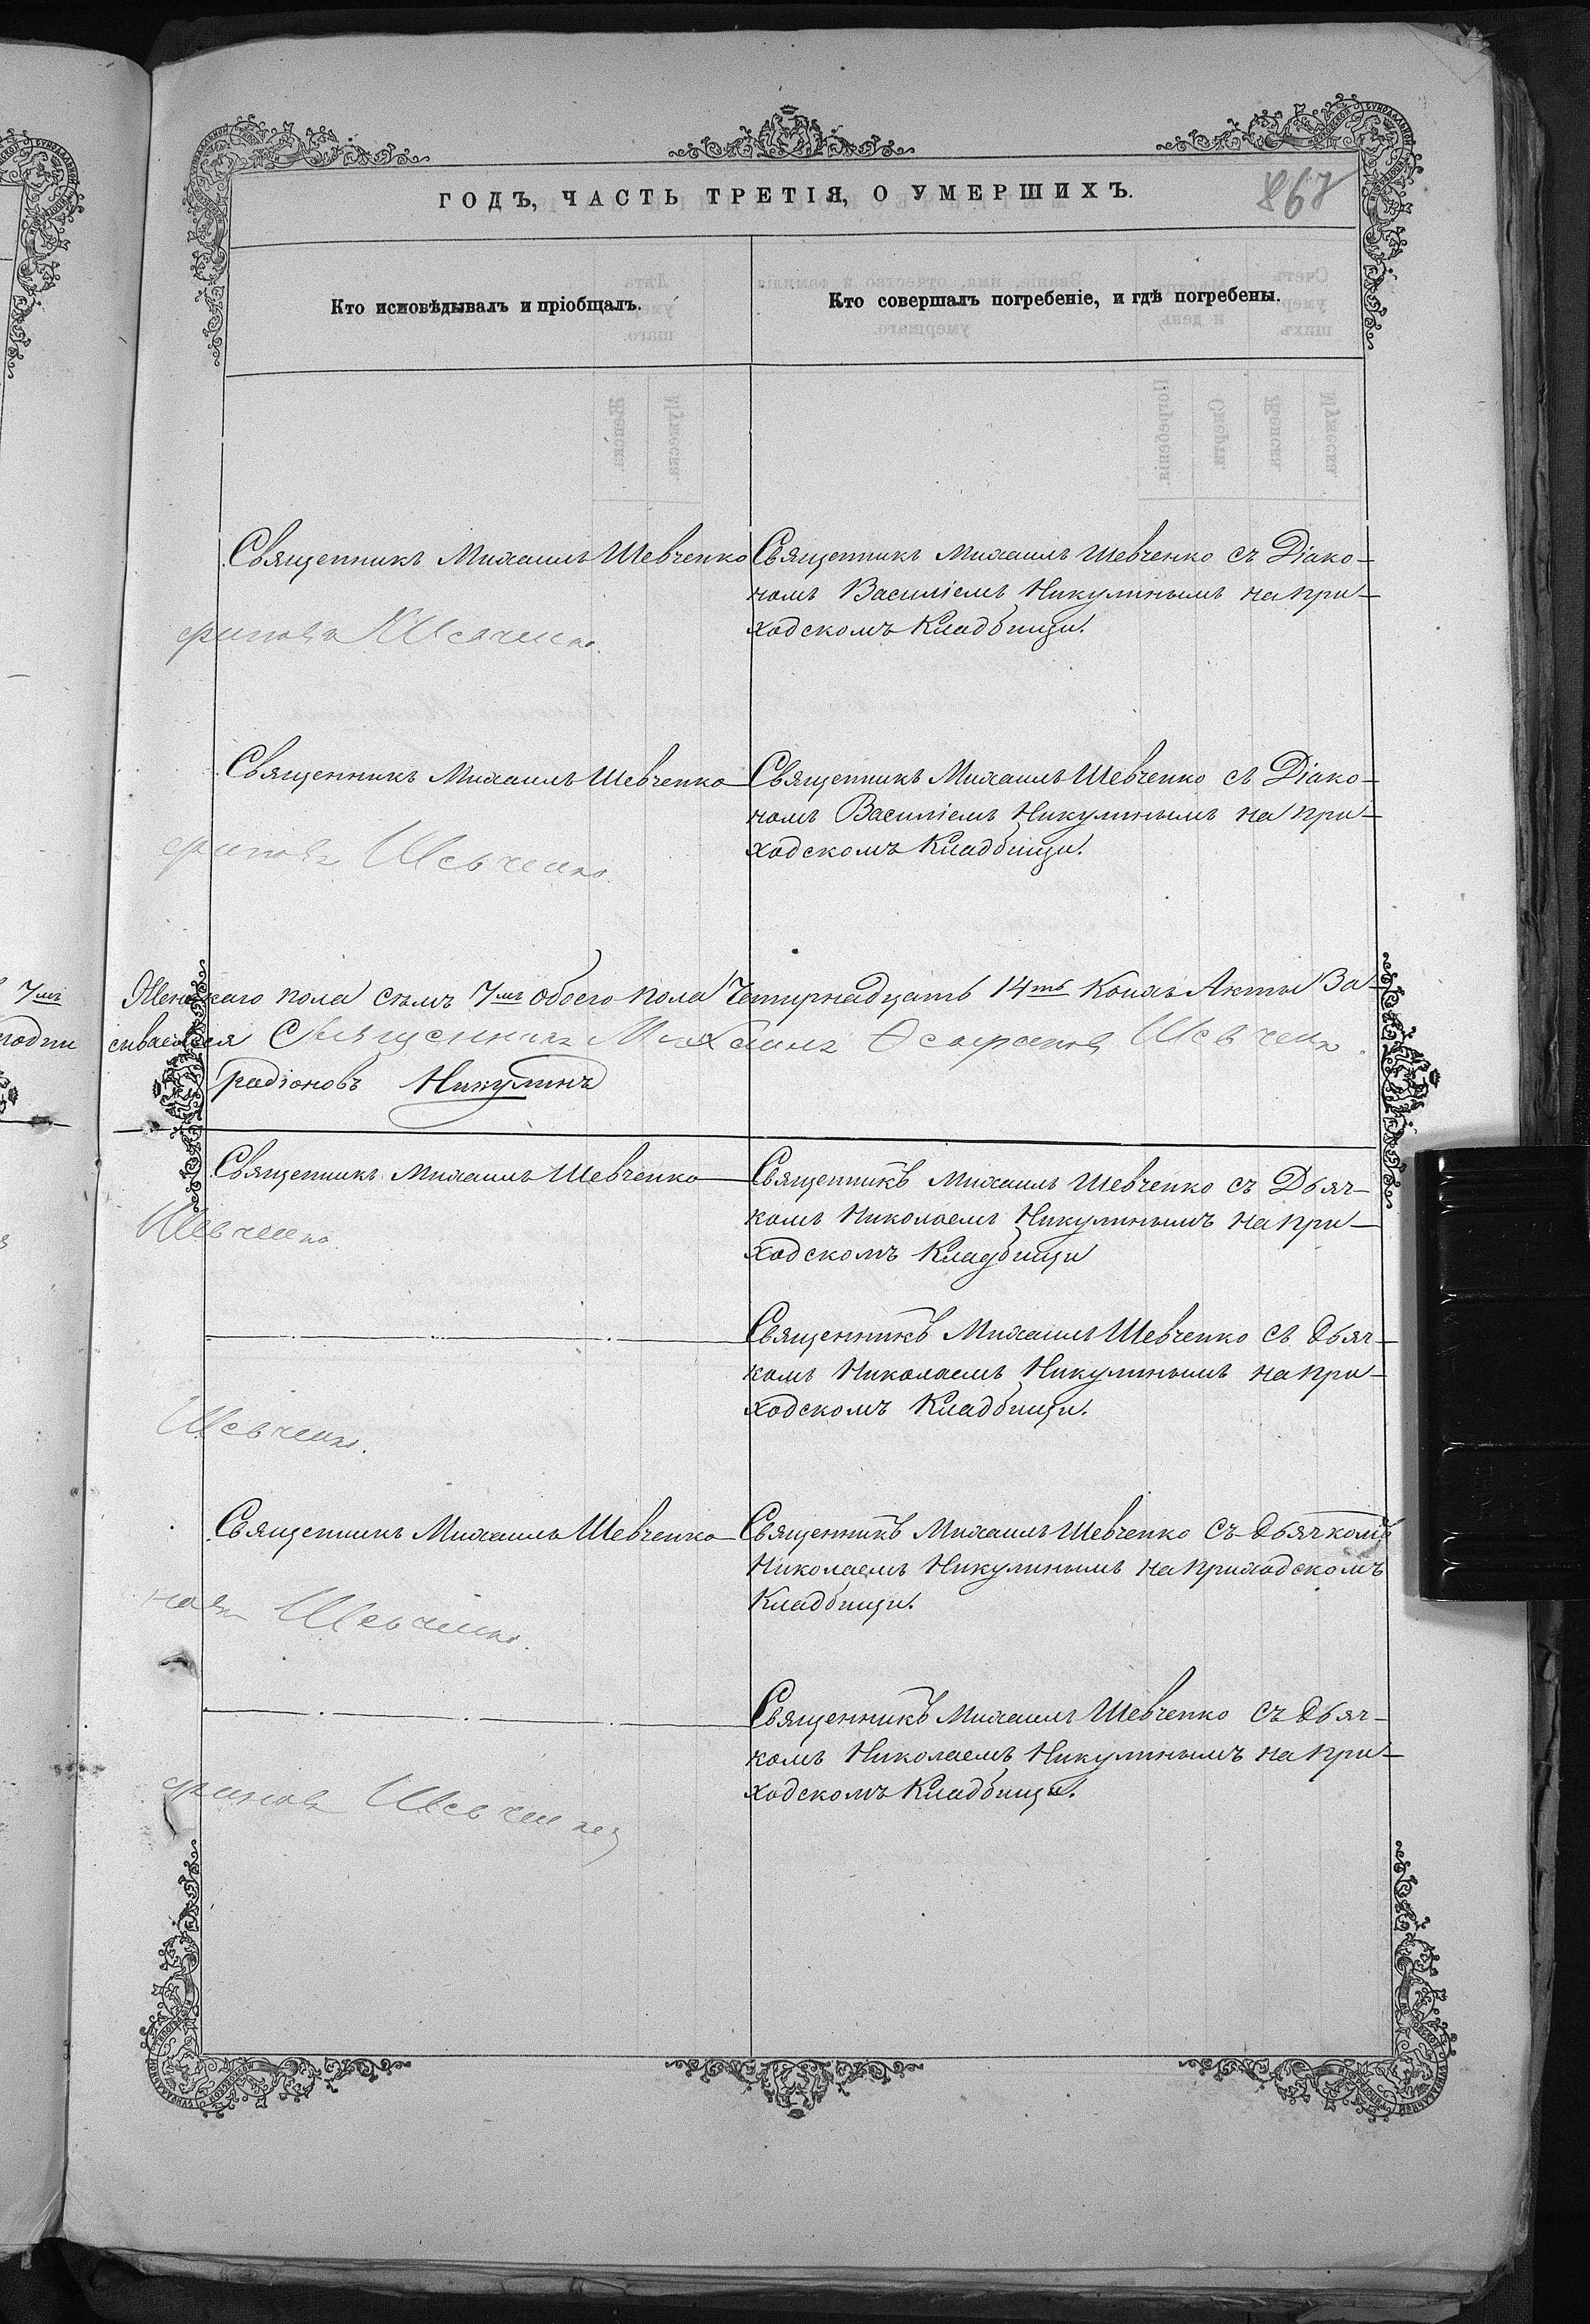 ГОДЪ, ЧАСТЬ ТРЕТІЯ, О УМЕРШИХЪ.
867
Кто исповѣдывалъ и пріобщалъ.
Кто совершалъ погребеніе, и гдѣ погребены.
Священникъ Михаилъ Шевченко
Священникъ Михаилъ Шевченко съ Діако-
номъ Василіемъ Никулинымъ на при-
ходскомъ Кладбищи.
Шевченко.
Священникъ Михаилъ Шевченко
Священникъ Михаилъ Шевченко съ Діако-
номъ Василіемъ Никулинымъ на при-
ходскомъ Кладбищи.
Шевченко.
7мъ
Женскаго пола сѣмъ 7мъ обоего пола Четырнадцать 14ть Коихъ Акты За
подпи
сываемся Священникъ Михаилъ Шевченко.
радіоновъ Никулинъ
Священникъ Михаилъ Шевченко
Священникъ Михаилъ Шевченко съ Дьяч-
комъ Николаемъ Никулинымъ на при-
ходскомъ Кладбищи
Шевченко.
Священникъ Михаилъ Шевченко съ дьяч-
комъ Николаемъ Никулинымъ на при-
ходскомъ Кладбищи.
Шевченко.
Священникъ Михаилъ Шевченко
Священникъ Михаилъ Шевченко съ дьячкомъ
Николаемъ Никулинымъ на приходскомъ
Кладбищи.
новъ Шевченко.
Священникъ Михаилъ Шевченко съ дьяч-
комъ Николаемъ Никулинымъ на при-
ходскомъ Кладбищи.
Шевченко